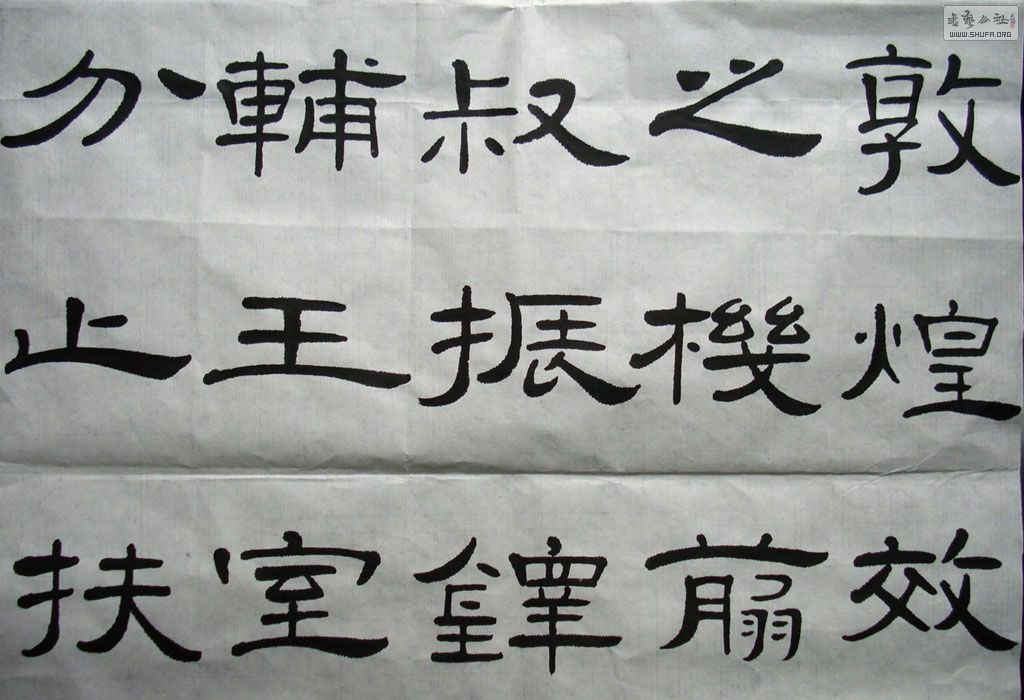 敦煌效
之機翦
叔振鐸
輔王室
分止扶
書藝公社
WWW.SHUFA.ORG